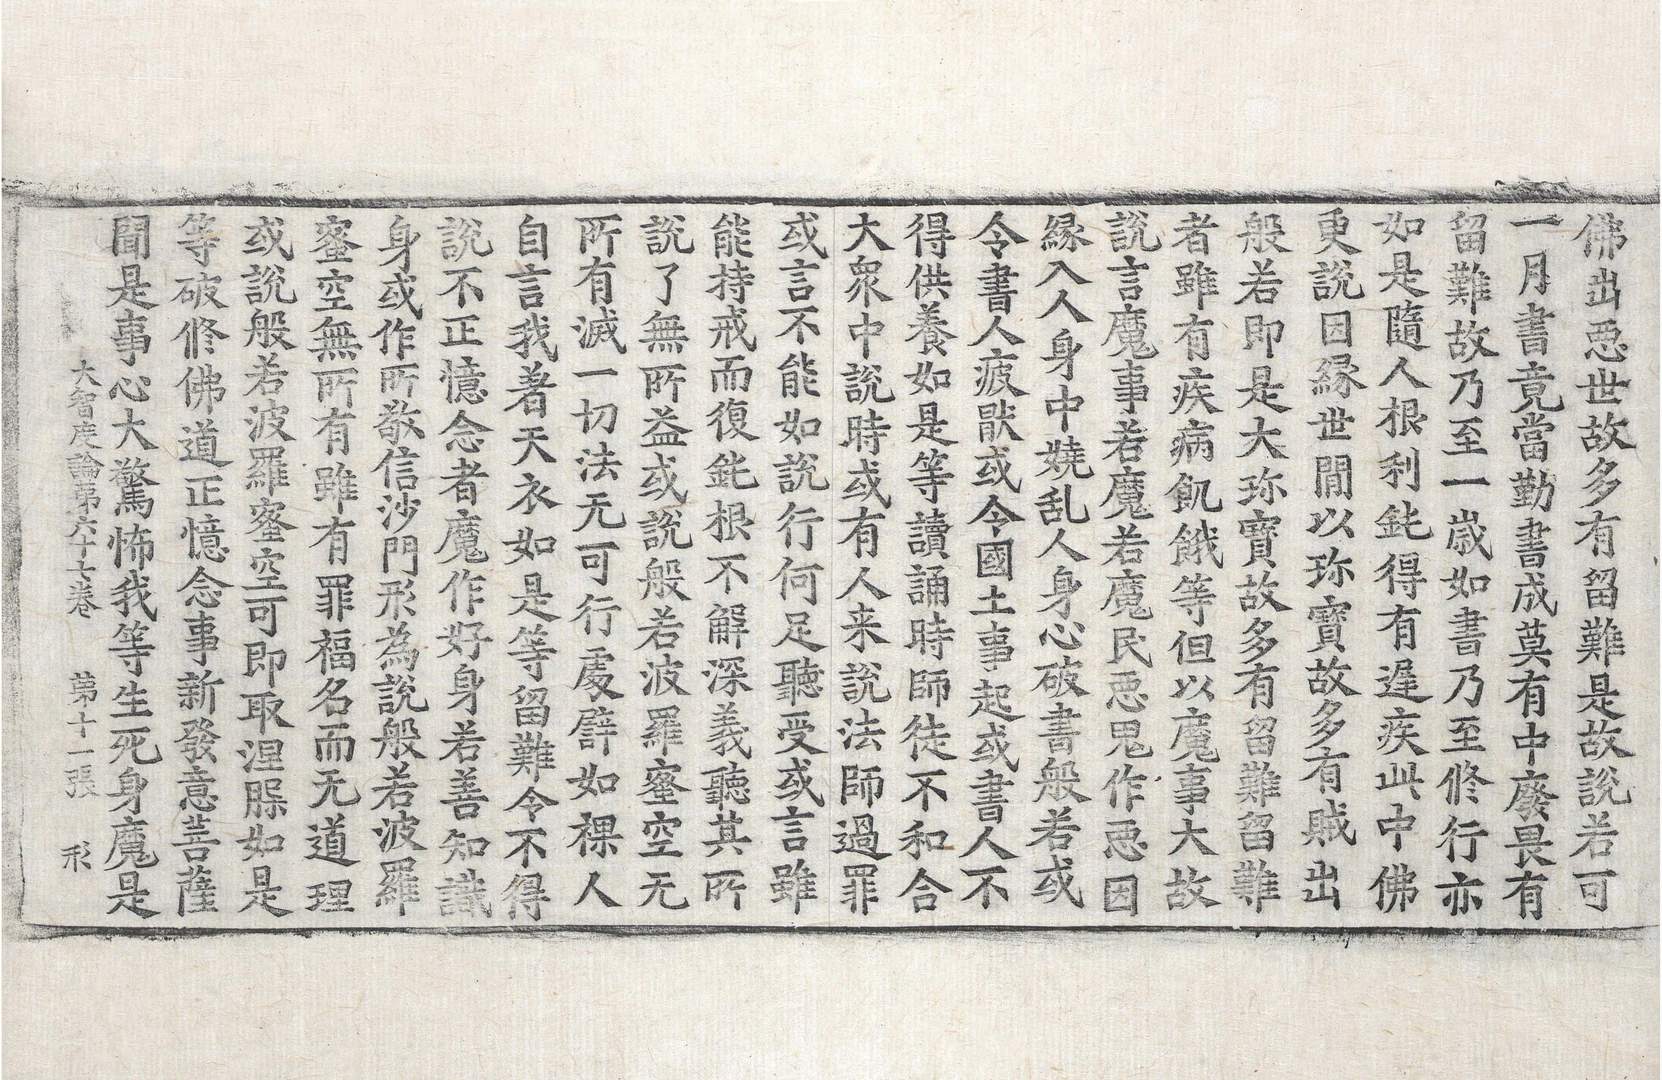 佛出惡世故多有留難是故說若可
一月書竟當勤書成莫有中廢畏有
留難故乃至一歲如書乃至修行亦
如是隨人根利鈍得有遲疾此中佛
更說因緣世間以珎寶故多有賊出
般若即是大珎寶故多有留難留難
者雖有疾病飢餓等但以魔事大故
說言魔事若魔若魔民惡鬼作惡因
緣入人身中嬈乱人身心破書般若或
令書人疲猒或令國土事起或書人不
得供養如是等讀誦時師徒不和合
大眾中說時或有人来說法師過罪
或言不能如說行何足聽受或言雖
能持戒而復鈍根不解深義聽其所
說了無所益或說般若波羅蜜空无
所有滅一切法无可行處譬如裸人
自言我著天衣如是等留難令不得
說不正憶念者魔作好身若善知識
身或作所敬信沙門形為說般若波羅
蜜空無所有雖有罪福名而无道理
或說般若波羅蜜空可即取涅槃如是
等破修佛道正憶念事新發意菩薩
聞是事心大驚怖我等生死身魔是
大智度論第六十七卷　第十一張　形